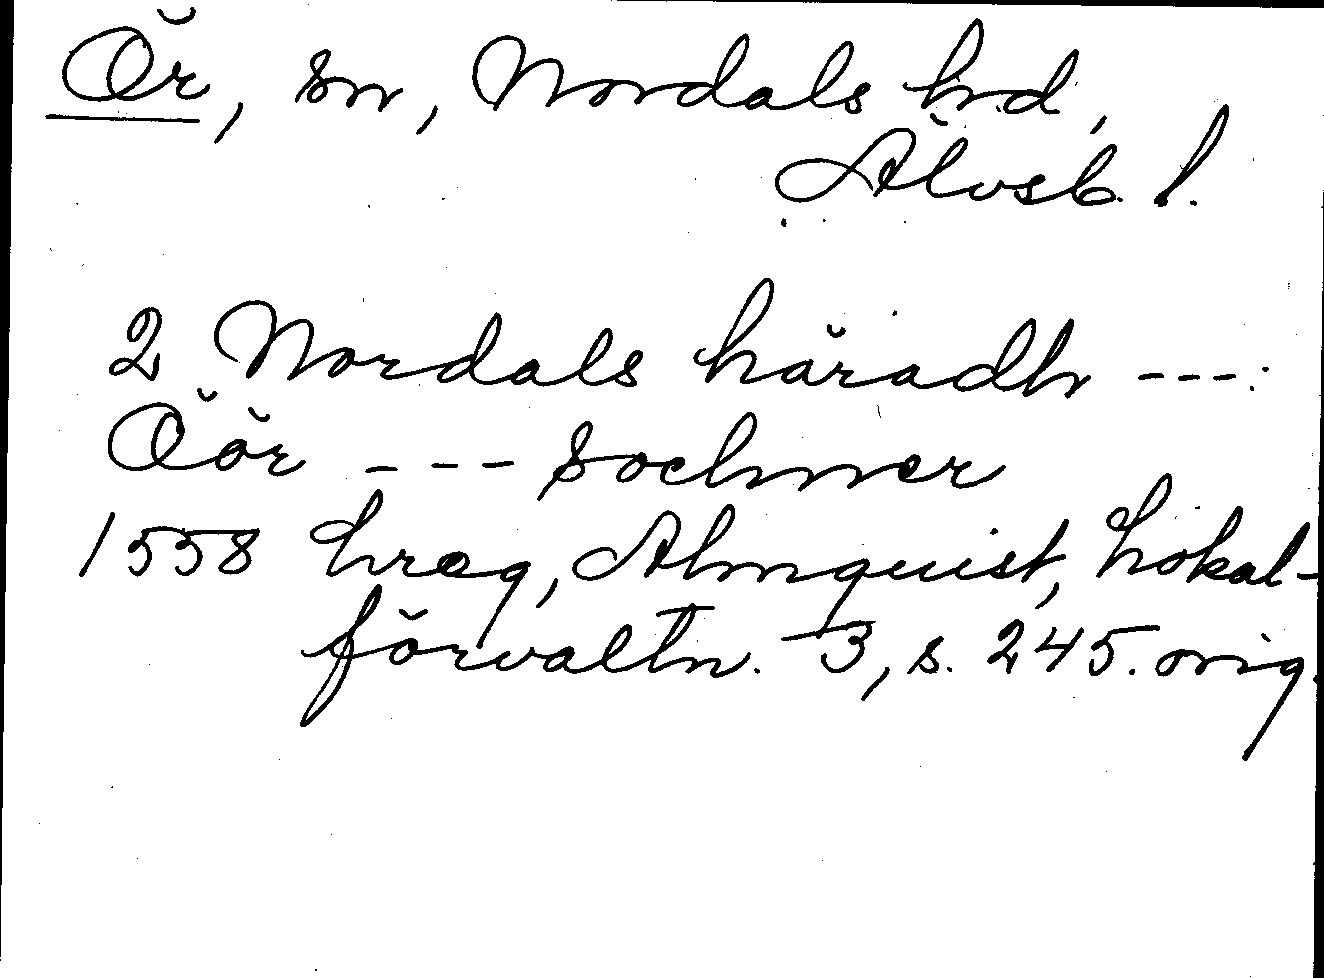 Ör, sn, Nordals hd,
Älvsb. l.
2 Nordals häradh ---:
Öör --- sochner
1558 hreg, Almquist, Lokal-
förvaltn. 3, s. 245. orig.